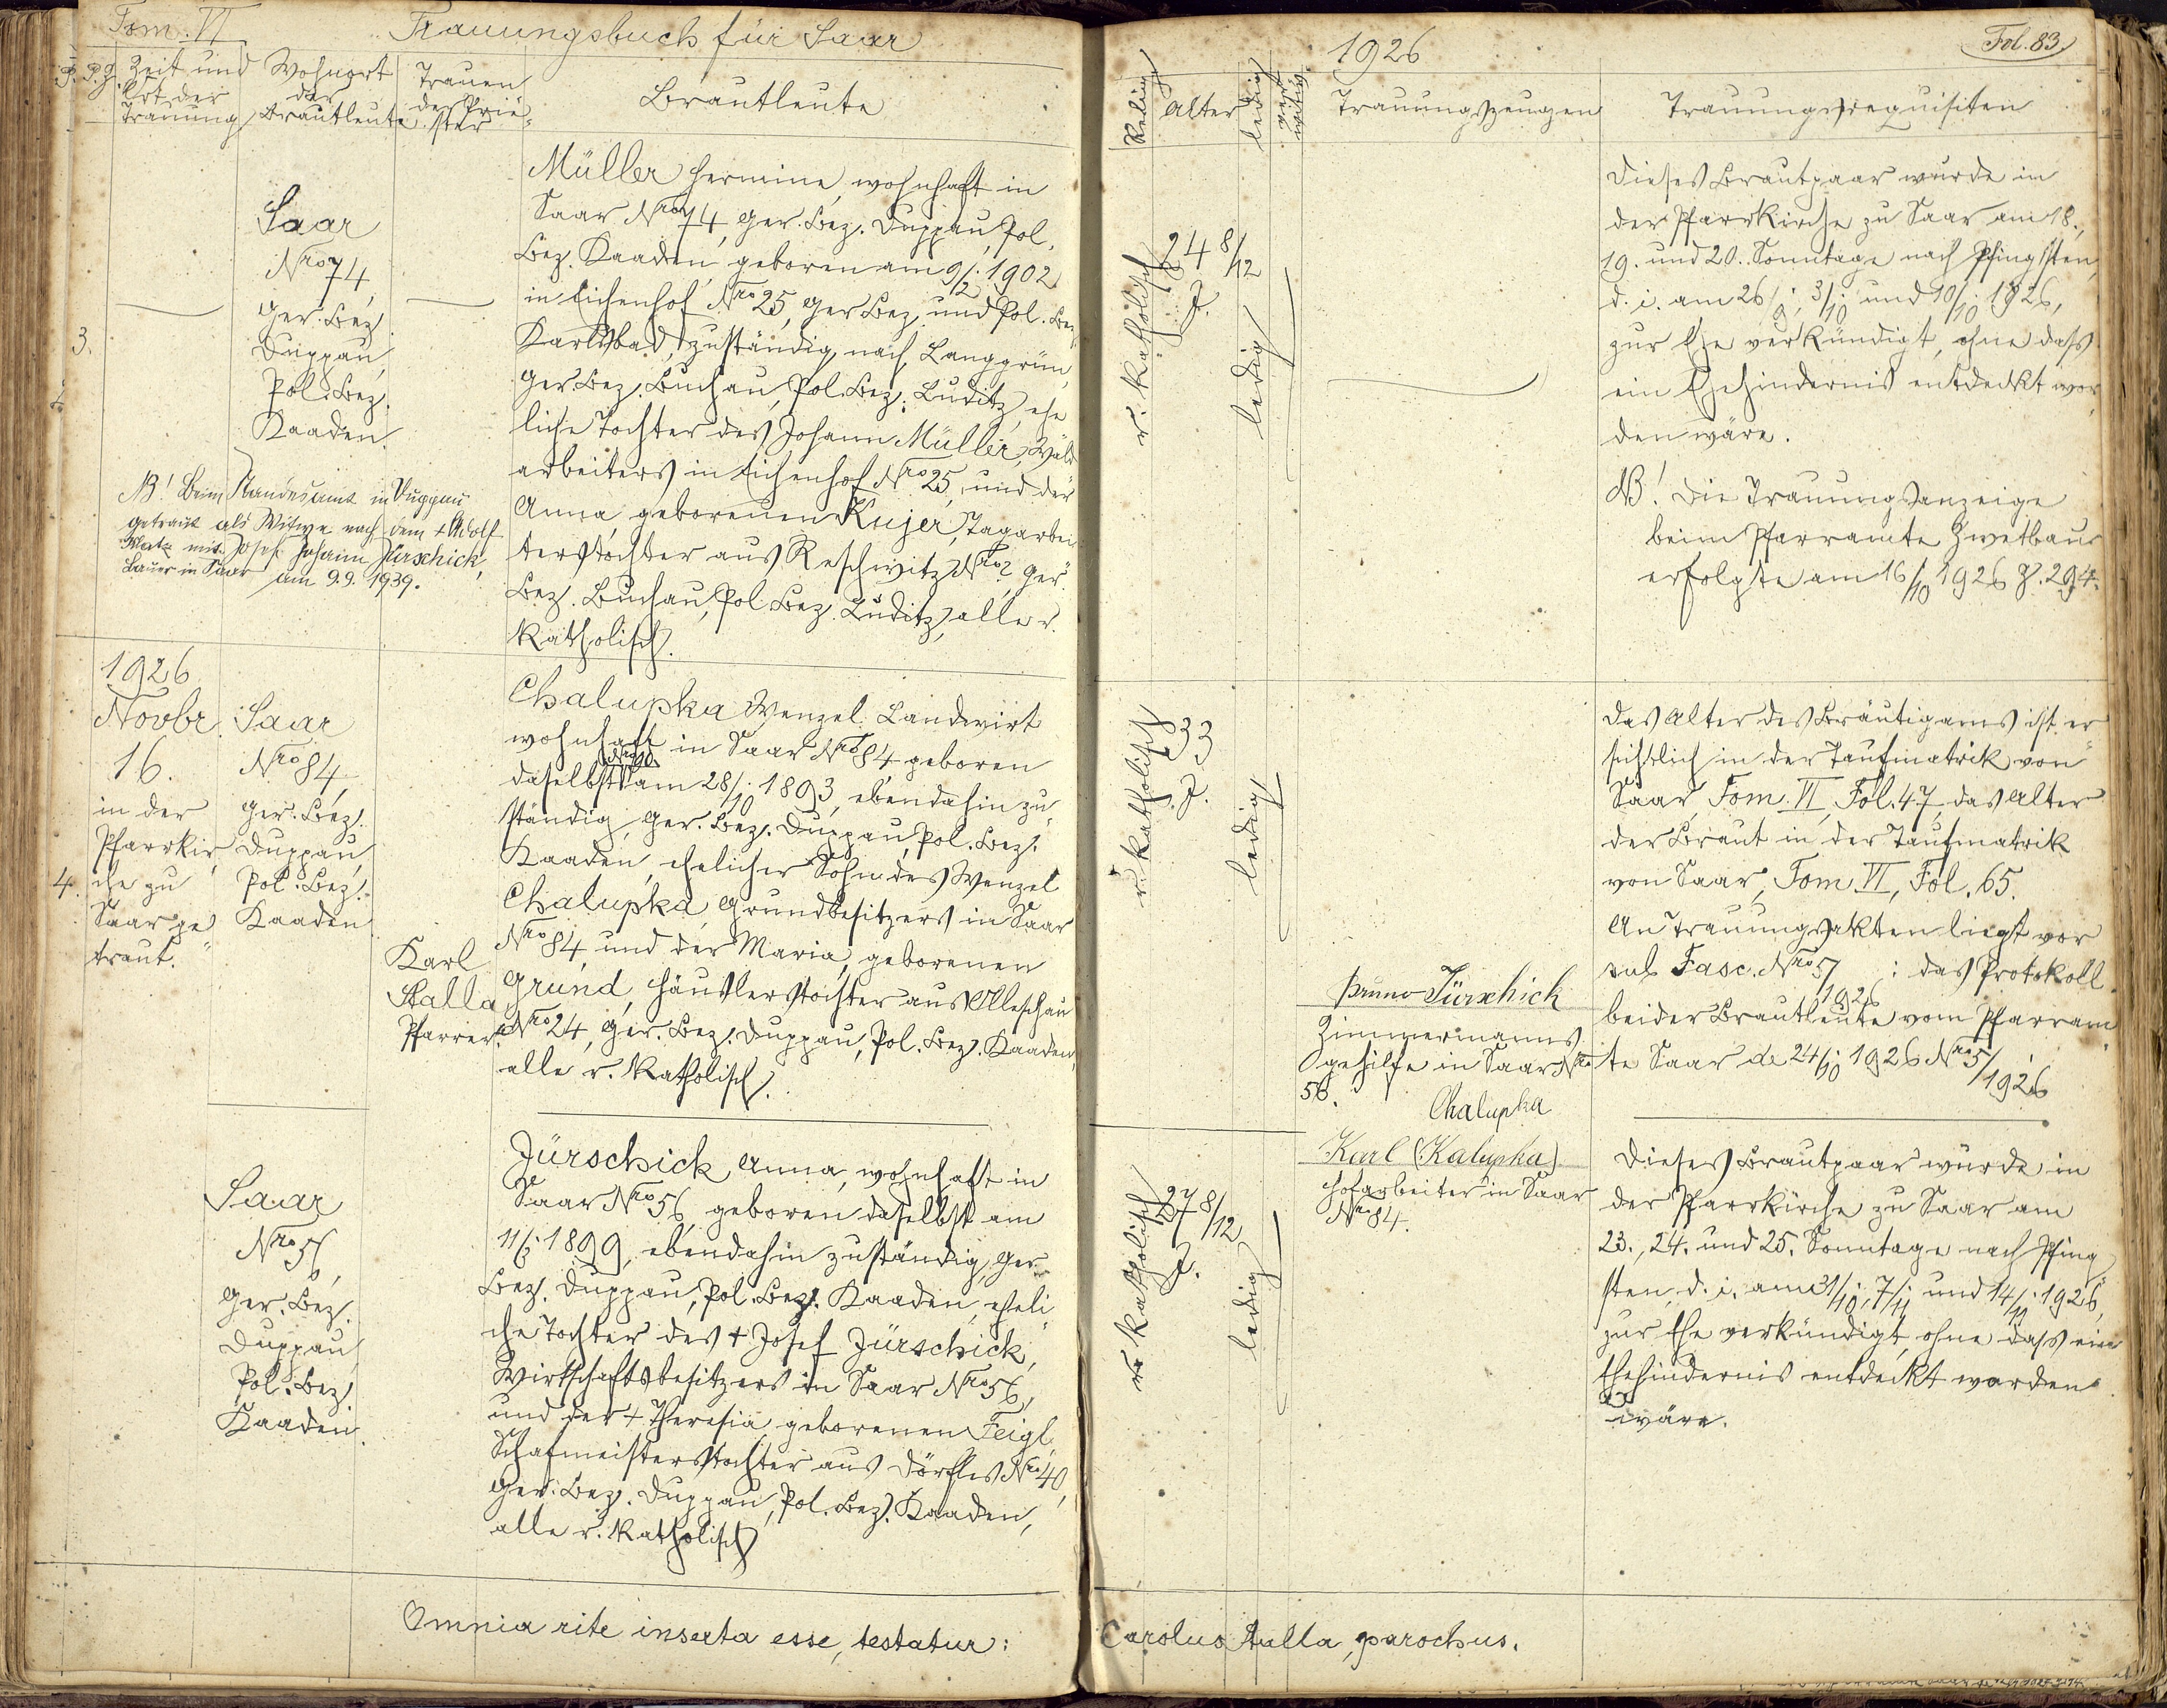 Tom. VI
Trauungsbuch für Saar
P. Z.
Zeit und
Ort der
Trauung
Wohnort
der
Brautleute
Trauen
der Prie=
ster
Brautleute
3.
Saar
Nro 74,
Ger. Bez.
Duppau,
Pol. Bez.
Kaaden.
NB! Beim Standesamt in Duppau
getraut als Witwe nach dem + Adolf
mit Josef Johann Jürschick,
Bauer in Saar am 9.9.1939.
Müller Hermine, wohnhaft in
Saar Nro 74, Ger. Bez. Duppau, Pol.
Bez. Kaaden, geboren am 9/2. 1902
in Eichenhof Nro 25, Ger Bez. und Pol. Bez.
Karlsbad, zuständig nach Langgrün,
Ger. Bez. Buchau, Pol. Bez. Luditz, ehe
liche Tochter des Johann Müller, Wald
arbeiters in Eichenhof Nro 25, und der
Anna geborenen Kujer, Tagarbei
terstochter aus Reschwitz Nro 2, Ger.
Bez. Buchau, Pol. Bez. Luditz, alle r.
katholisch.
1926
Novbr.
16.
in der
Pfarrkir
che zu
Saar ge
traut.
4.
Saar
Nro 84,
Ger. Bez.
Duppau,
Pol. Bez.
Kaaden
Karl
Stalla
Pfarrer.
Chalupka Wenzel Landwirt
wohnhaft in Saar Nro 84 geboren
daselbst am 28/10. 1893, ebendahin zu
ständig, Ger. Bez. Duppau, Pol. Bez.
Kaaden, ehelicher Sohn des Wenzel
Chalupka Grundbesitzers in Saar
Nro 84, und der Maria, geborenen
Grund, Häuslerstochter aus Olleschau
Nro 24, Ger. Bez. Duppau, Pol. Bez. Kaaden,
alle r. katholisch.
Saar
Nro 56,
Ger. Bez.
Duppau,
Pol. Bez.
Kaaden.
Jürschick Anna, wohnhaft in
Saar Nro 56, geboren daselbst am
1899, ebendahin zuständig, Ger.
Bez. Duppau, Pol. Bez. Kaaden, eheli
che Tochter des + Josef Jürschick,
Wirtschaftsbesitzers in Saar Nro 56,
und der + Theresia geborenen Feigl,
Schafmeisterstochter aus Dörfles Nro 40,
Ger. Bez. Duppau, Pol. Bez. Kaaden,
alle r. katholisch
Omnia rite inserta esse, testatur:
1926
Fol. 83
Religion
Alter
ledig
verwitw.
Trauungszeugen
Trauungsrequisiten
r. katholisch
24 8/12
J.
ledig
Dieses Brautpaar wurde in
der Pfarrkirche zu Saar am 18.,
19. und 20. Sonntage nach Pfingsten,
d. i. am 26/9., 3/10. und 10/10. 1926,
zur Ehe verkündigt, ohne dass
ein Ehehindernis entdeckt wor
den wäre.
NB! Die Trauungsanzeige
beim Pfarramte Zwetbau
erfolgte am 16/10 1926 Z. 294.
r. katholisch
33
J.
ledig
Bruno Jürschick
Zimmermanns
gehilfe in Saar Nro
56.
Das Alter des Bräutigams ist er
sichtlich in der Taufmatrik von
Saar, Tom. VI, Fol. 47, das Alter
der Braut in der Taufmatrik
von Saar, Tom VI, Fol. 65.
An Trauungsakten liegt vor
sub Fasc. Nro 5/1926: das Protokoll
beider Brautleute vom Pfarram
te Saar de 24/10. 1926 Nro 5/1926
Chalupka
Karl (Kalupka)
Hofarbeiter in Saar
Nro 84.
r. katholisch
27 8/12
J.
ledig
Dieses Brautpaar wurde in
der Pfarrkirche zu Saar am
23., 24. und 25. Sonntage nach Pfing
sten, d. i. am 31/10., 7/11. und 14/11. 1926,
zur Ehe verkündigt, ohne dass ein
Ehehindernis entdeckt worden
wäre.
Carolus Stalla, parochus.